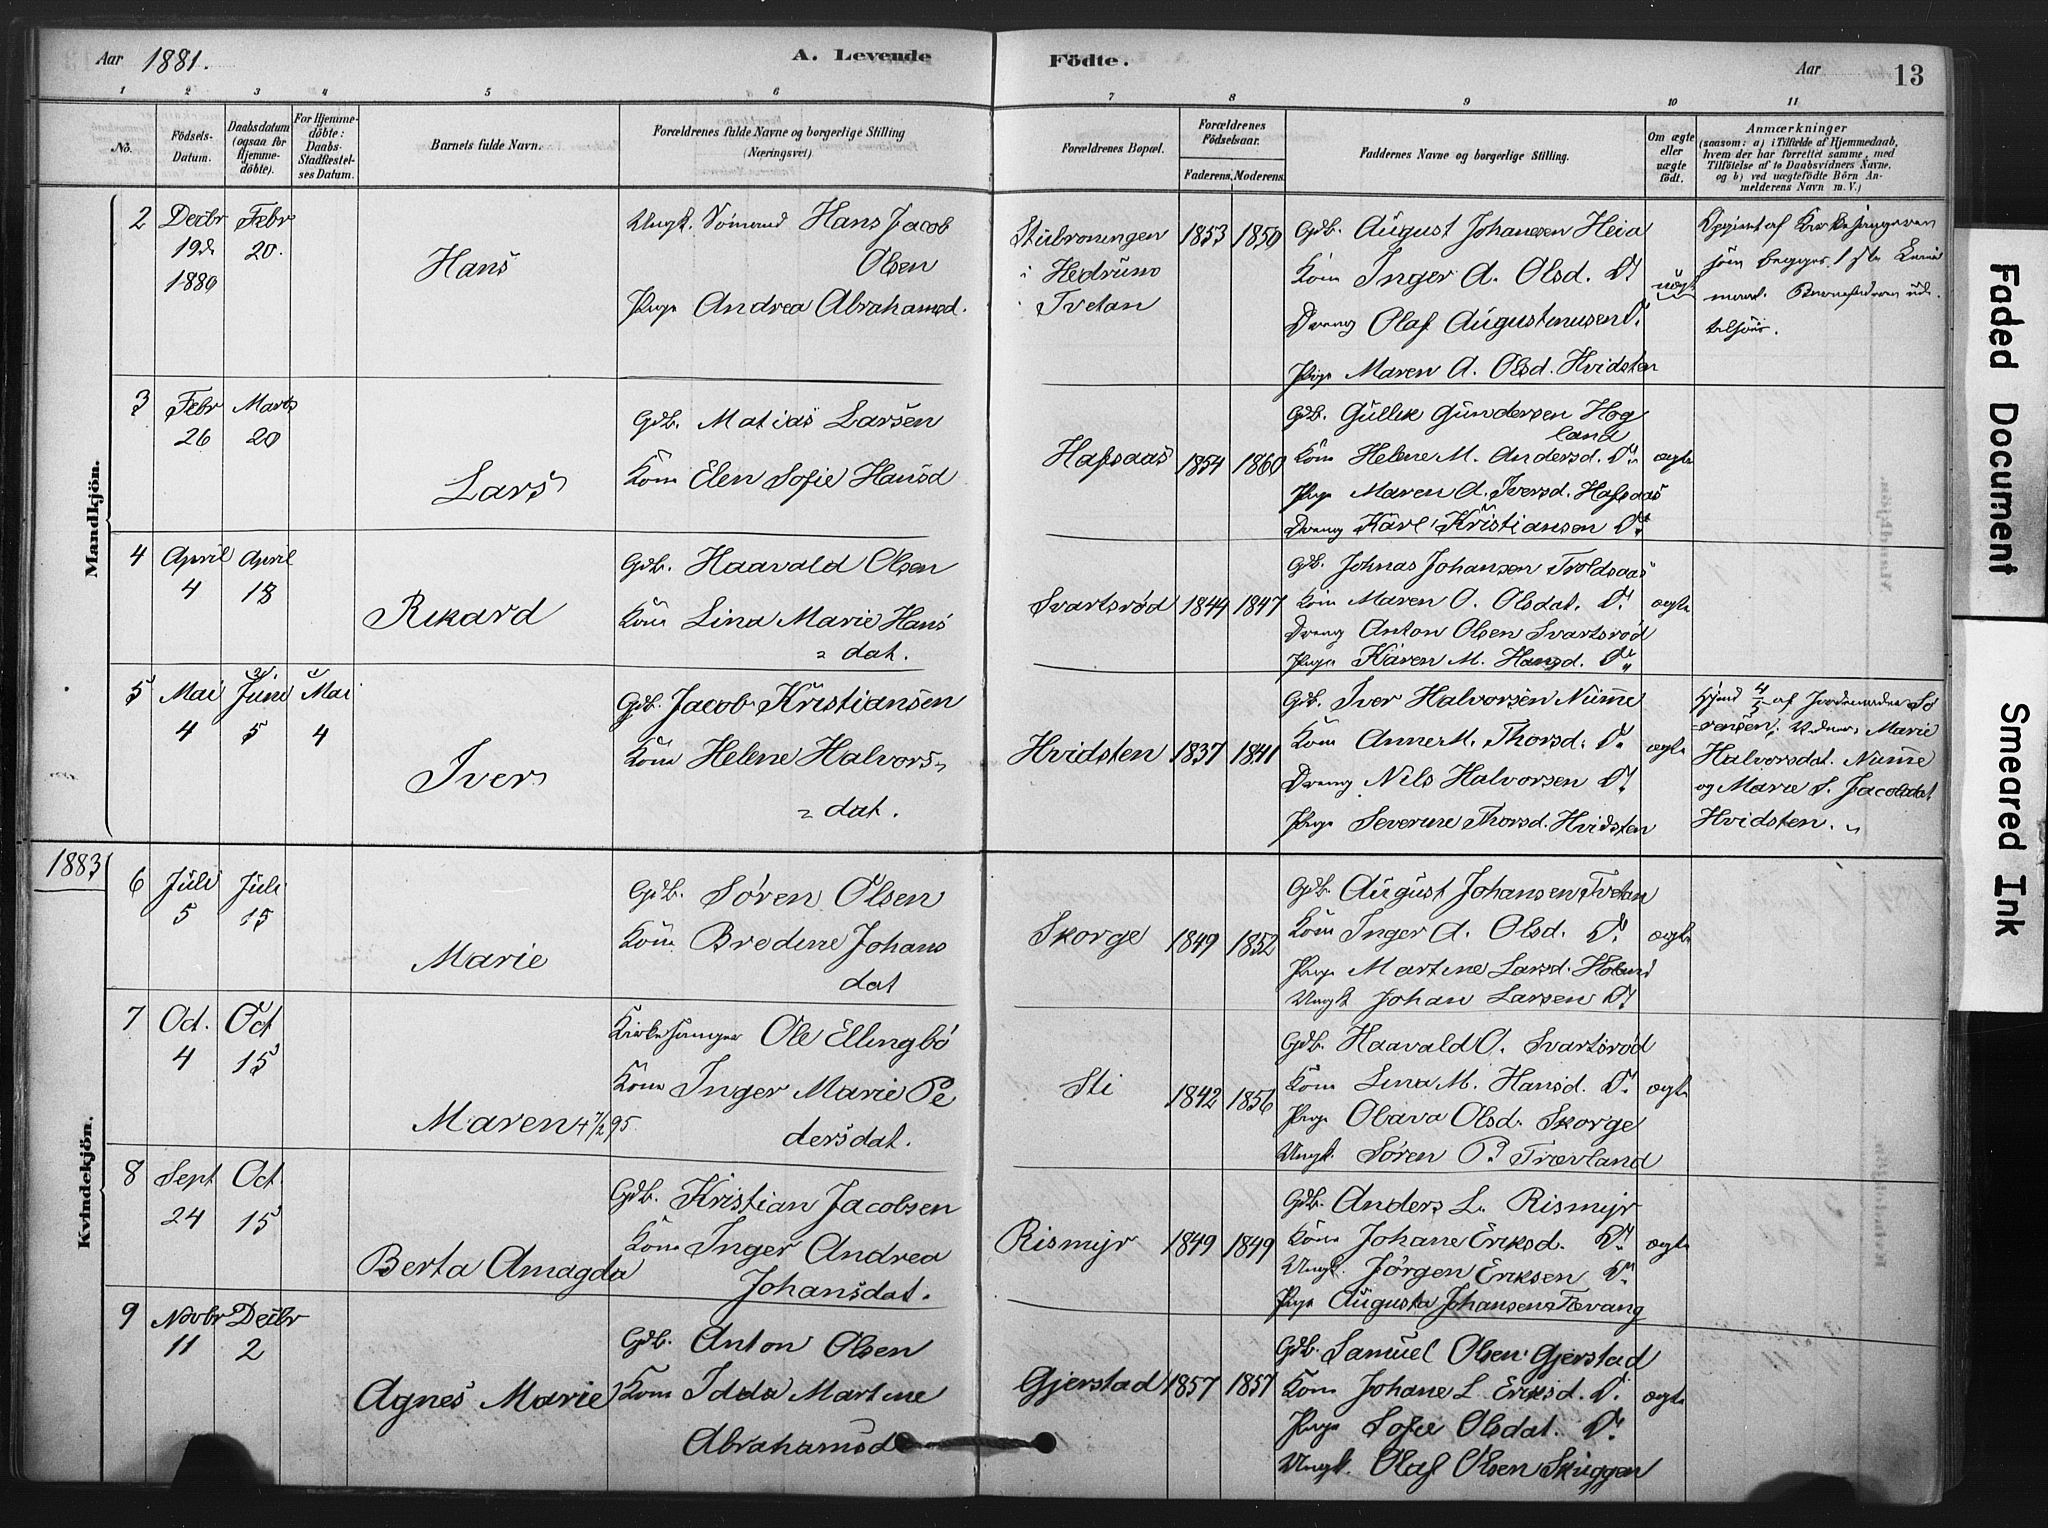 Aar 1881. A. Levende Födte. Aar 13
1 2 3 4 5 6 7 8 9 10 11
No. Födsels-Datum. Daabsdatum (ogsaa for Hjemme-döbte). For Hjemme-döbte: Daabs-Stadfæstel-ses Datum. Barnets fulde Navn. Forældrenes fulde Navne og borgerlige Stilling (Næringsvei). Forældrenes Bopæl. Forældrenes Födselsaar. Faderens. Moderens. Faddernes Navne og borgerlige Stilling. Om ægte eller uægte födt. Anmærkninger (saasom: a) i Tilfælde af Hjemmedaab, hvem der har forrettet samme, med Tilföielse af to Daabsvidners Navne, og b) ved uægtefödte Börn An-melderens Navn m. V.)
Mandkjön.
2 Decbr 19de 1880 Febr 20.
Hans
Ungk. Sømand Hans Jacob
Olsen
Pige Andrea Abrahamsd.
i Hedrum
Tvetan
1853 1850
Gdb. August Johansen Heia
Kone Inger A. Olsd. Do
Dreng Olaf Augustinusen Do.
Pige Maren A. Olsd. Hvidsten
uægt
3 Febr 26 Marts 20
Lars
Gdb. Matias Larsen
Kone Elen Sofie Hansd
Hafsaas 1854 1860
Gdb. Gullik Gundersen Hog
land
Kone Helene M. Andersd. Do.
Pige Maren A. Iversd. Hafsaas
Dreng Karl Kristiansen Do.
ægte
4 April 4 April 18
Rikard
Gdb. Haavald Olsen
Kone Lina Marie Hans
= dat.
Svartsrød 1844 1847
Gdb. Johnas Johansen Troldsaas
Kone Maren O. Olsdat. Do.
Dreng Anton Olsen Svartsrød
Pige Karen M. Hansd. Do.
ægte
5 Mai 4 Juni 5 Mai 4
Iver
Gdb. Jacob Kristiansen
Kone Helene Halvors
= dat.
Hvidsten 1837 1841
Gdb. Iver Halvorsen Numme
Kone Anne M. Thorsd. Do.
Dreng Nils Halvorsen Do.
Pige Severine Thorsd. Hvidsten
ægte
Hjemd 4/5 af Jordemoder Sö
rensen, Vidner: Marie
Halvorsdat. Numme
og Marie S. Jacobsdat
Hvidsten.
1883
Kvindekjön.
6 Juli 5 Juli 15
Marie
Gdb. Søren Olsen
Kone Bredine Johans
dat
Skorge 1849 1852
Gdb. August Johansen Tvetan
Kone Inger A. Olsd. Do.
Pige Martine Larsd.
Ungk Johan Larsen Do.
ægte
7 Oct. 4 Oct 15
Maren 4 7/2 95
Kirkesanger Ole Ellingbö
Kone Inger Marie Pe
dersdat.
Sti 1842 1856
Gdb. Haavald O. Svartsrød
Kone Lina M. Hansd. Do.
Pige Olava Olsd. Skorge
Ungk. Søren P. Trævland
ægte
8 Sept 24 Oct. 15
Berta Amagda
Gdb. Kristian Jacobsen
Kone Inger Andrea
Johansdat.
Rismyr 1849 1849
Gdb. Anders L. Rismyr
Kone Johane Eriksd. Do.
Ungk. Jörgen Eriksen Do.
Pige Augusta Johansen Tævang
ægte
9 Novbr 11 Decbr 2
Agnes Marie
Gdb. Anton Olsen
Kone Idda Martine
Abrahamsd
Gjerstad 1857 1857
Gdb. Samuel Olsen Gjerstad
Kone Johane L Eriksd. Do.
Pige Sofie Olsdat. Do.
Ungk. Olaf Olsen Skuggen
ægte
Faded Document
Smeared Ink